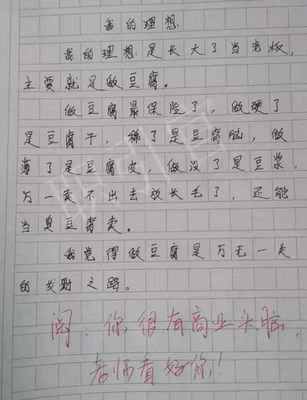 我的理想
我的理想是长大了当老板,
主要就是做豆腐。
做豆腐最保险了,做硬了
是豆腐干,稀了是豆腐脑,做
薄了是豆腐皮,做没了是豆浆,
万一卖不出去放长毛了,还能
当臭豆腐卖。
我觉得做豆腐是万无一失
的发财之路。
阅:你很有商业头脑,
老师看好你!!